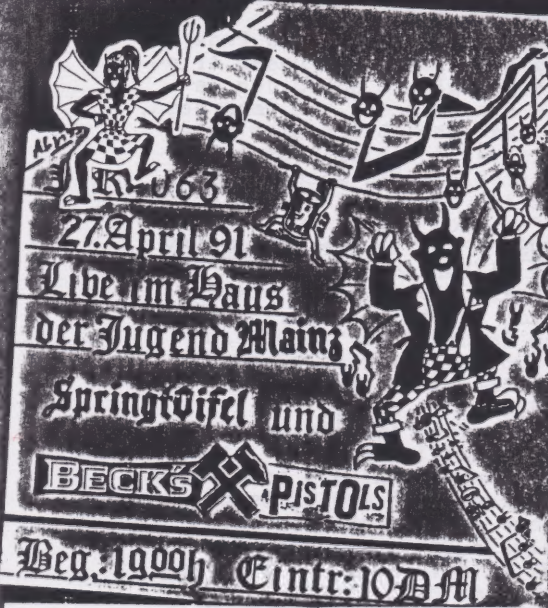 27. April 91
Live im Haus
der Jugend Mainz
Springtoifel und
BECK'S PISTOLS
Beg.: 1900h Eintr: 10 DM